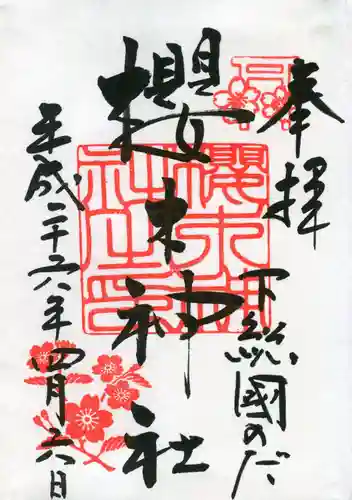 奉拝
下総國のだ
櫻木神社
平成二十六年四月六日
櫻木神社之印